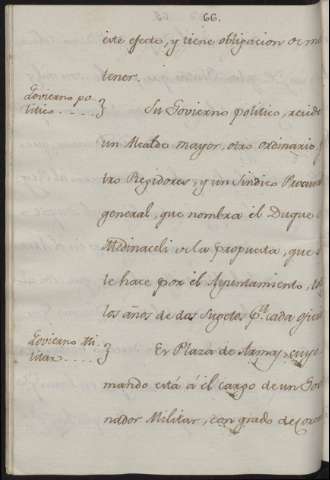 66.
este efecto, y tiene obligacion de
tener.
Govierno po
litico . . . . . }
Su Govierno politico, recide
un Alcalde mayor, otro ordinario,
tro Regidores, y un Sindico Procura
general, que nombra él Duque
Medinaceli de la propuesta, que
le hace por él Ayuntamiento,
los años de dos Sugetos pa. cada oficio
Govierno Mi
litar . . . . }
Es Plaza de Armas, cuyo
mando está á él cargo de un Gov
nador Militar, con grado de Coro